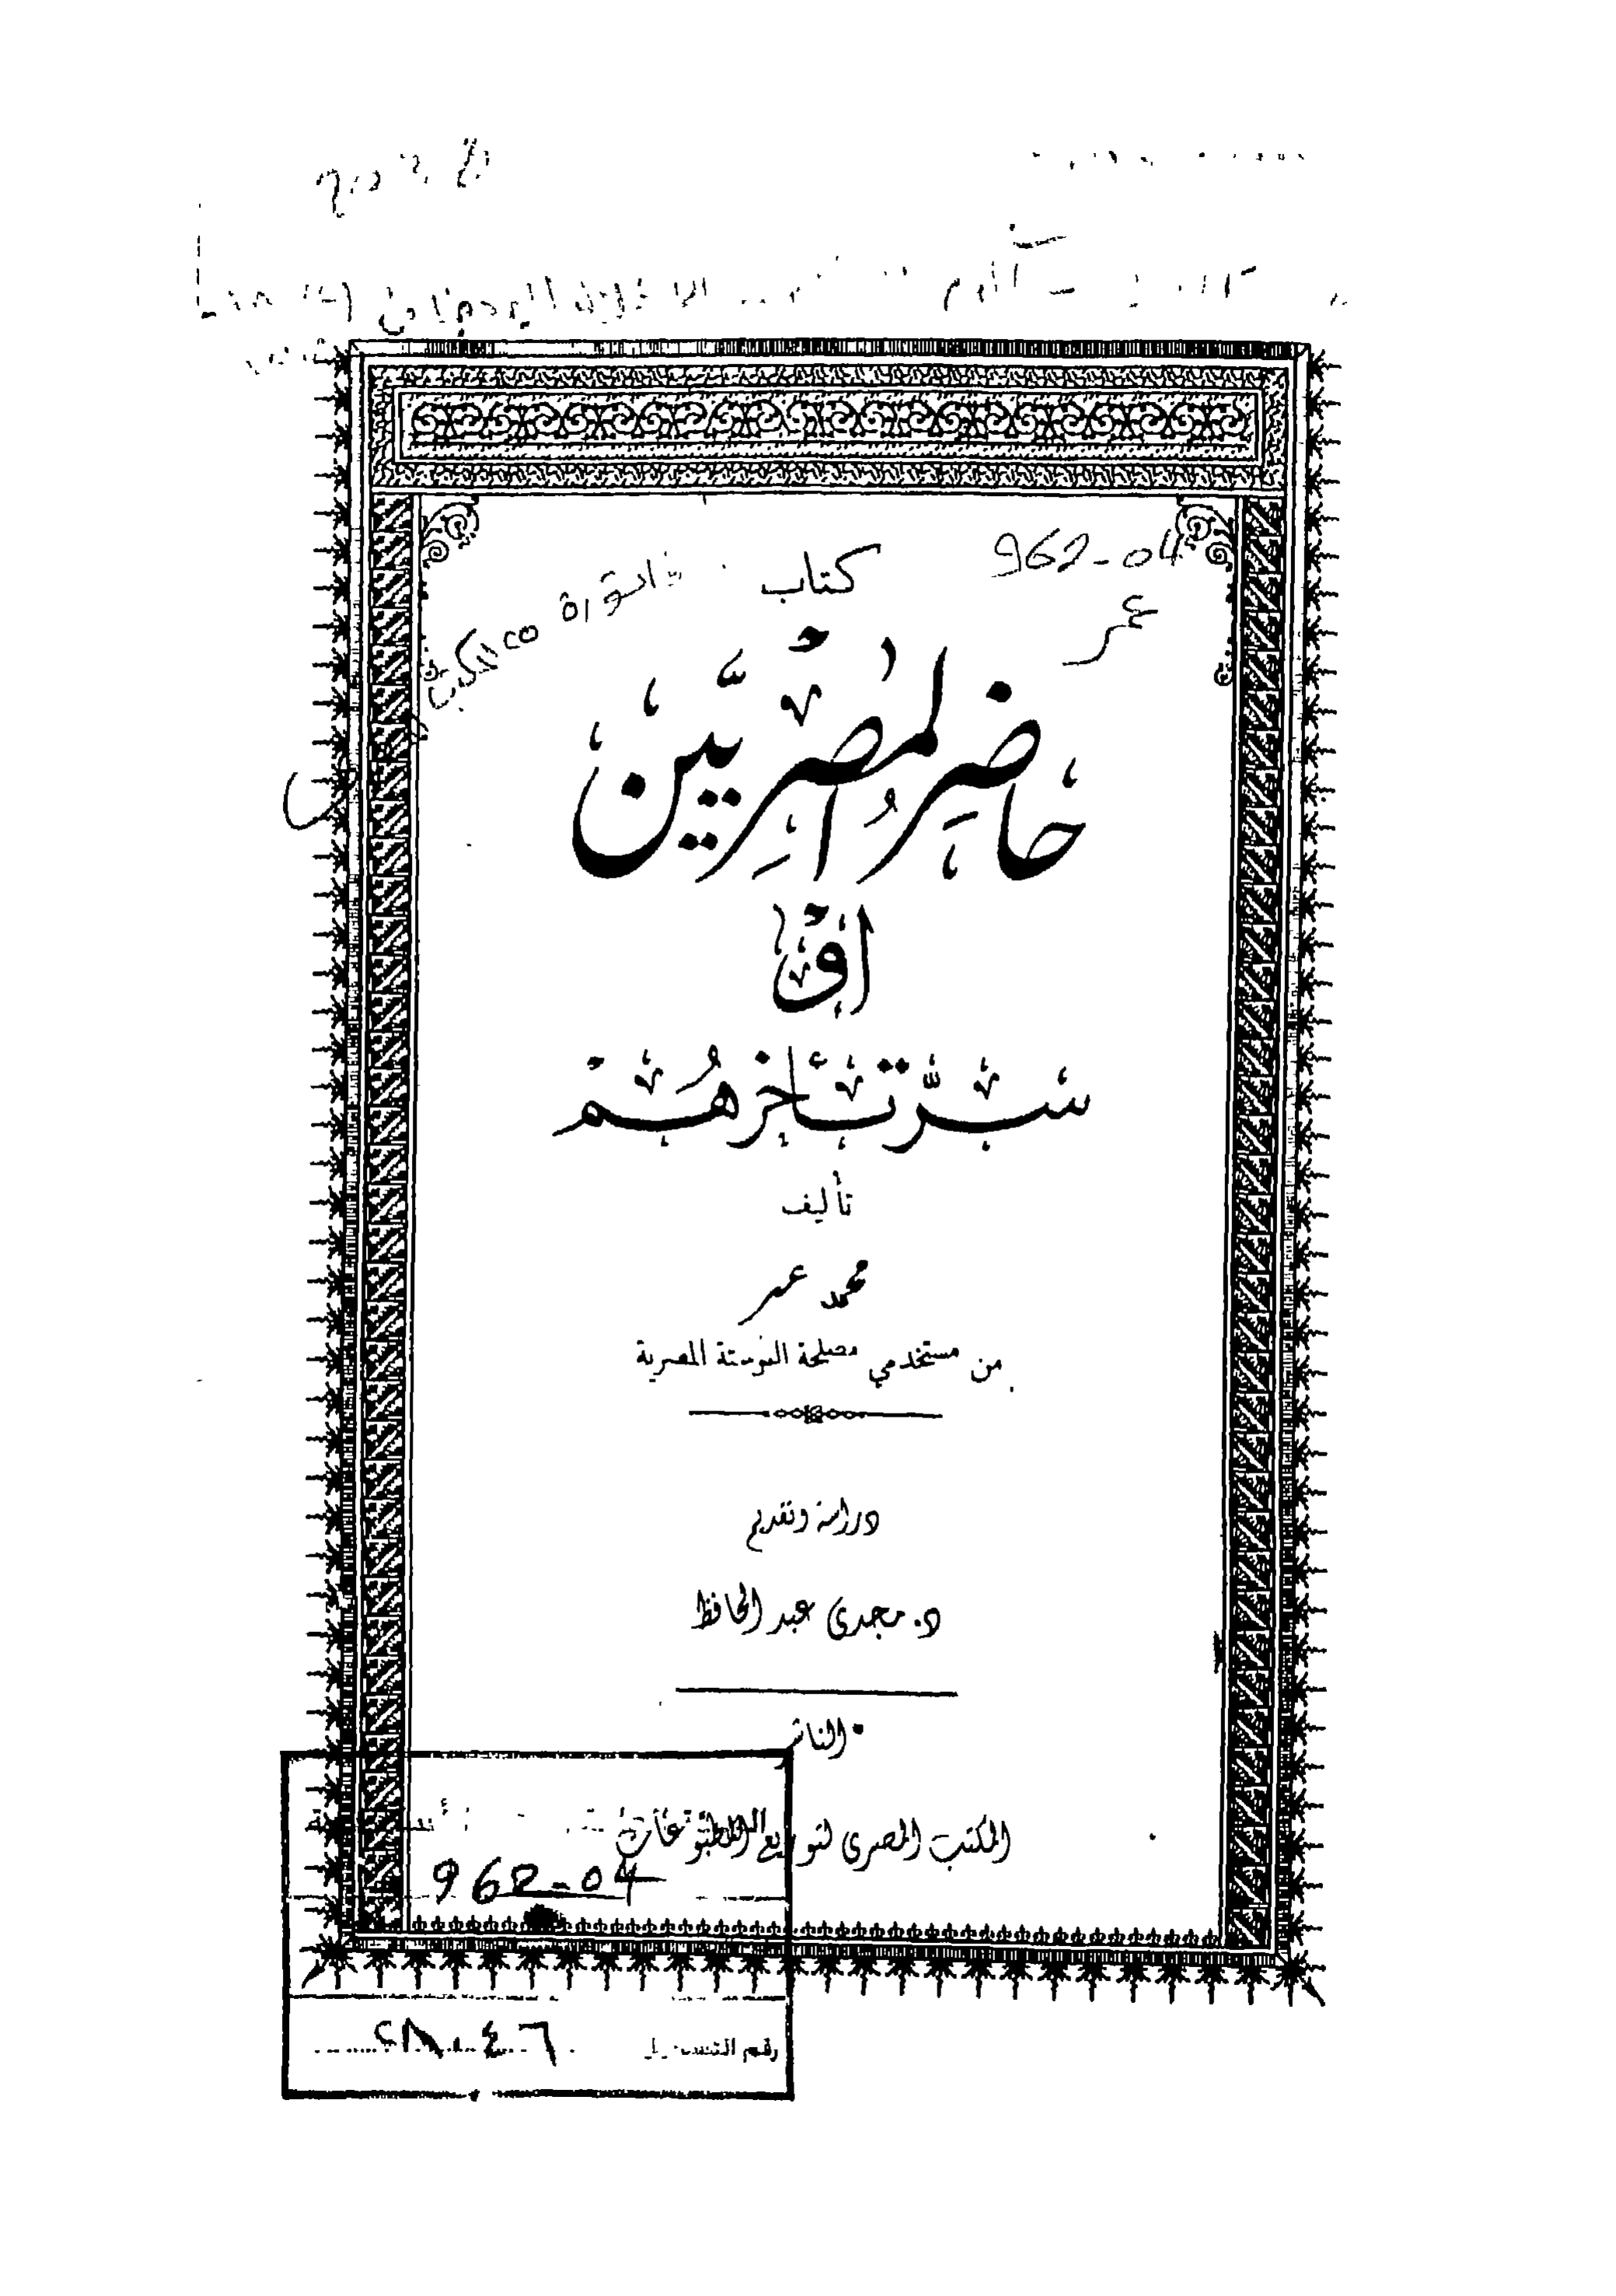 962-04
عمر
كتاب
حَاضِرُ المِصْرِيِّين
أَوْ
سِرُّ تَأَخُّرِهُمْ
تأليف
محمد عمر
من مستخدمي مصلحة البوستة المصرية
دراسة وتقديم
د. مجدى عبد الحافظ
الناشر
المكتب المصرى لتوزيع المطبوعات
962-04
رقم التسجيل ٢٨٠٤٦